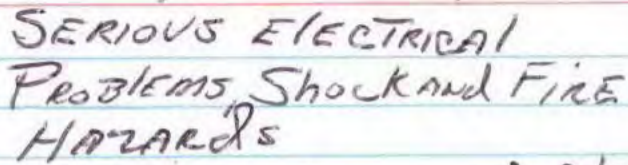 SERIOUS ElECTRICAl
PROBlEMS, Shock AND FIRE
HAZARdS